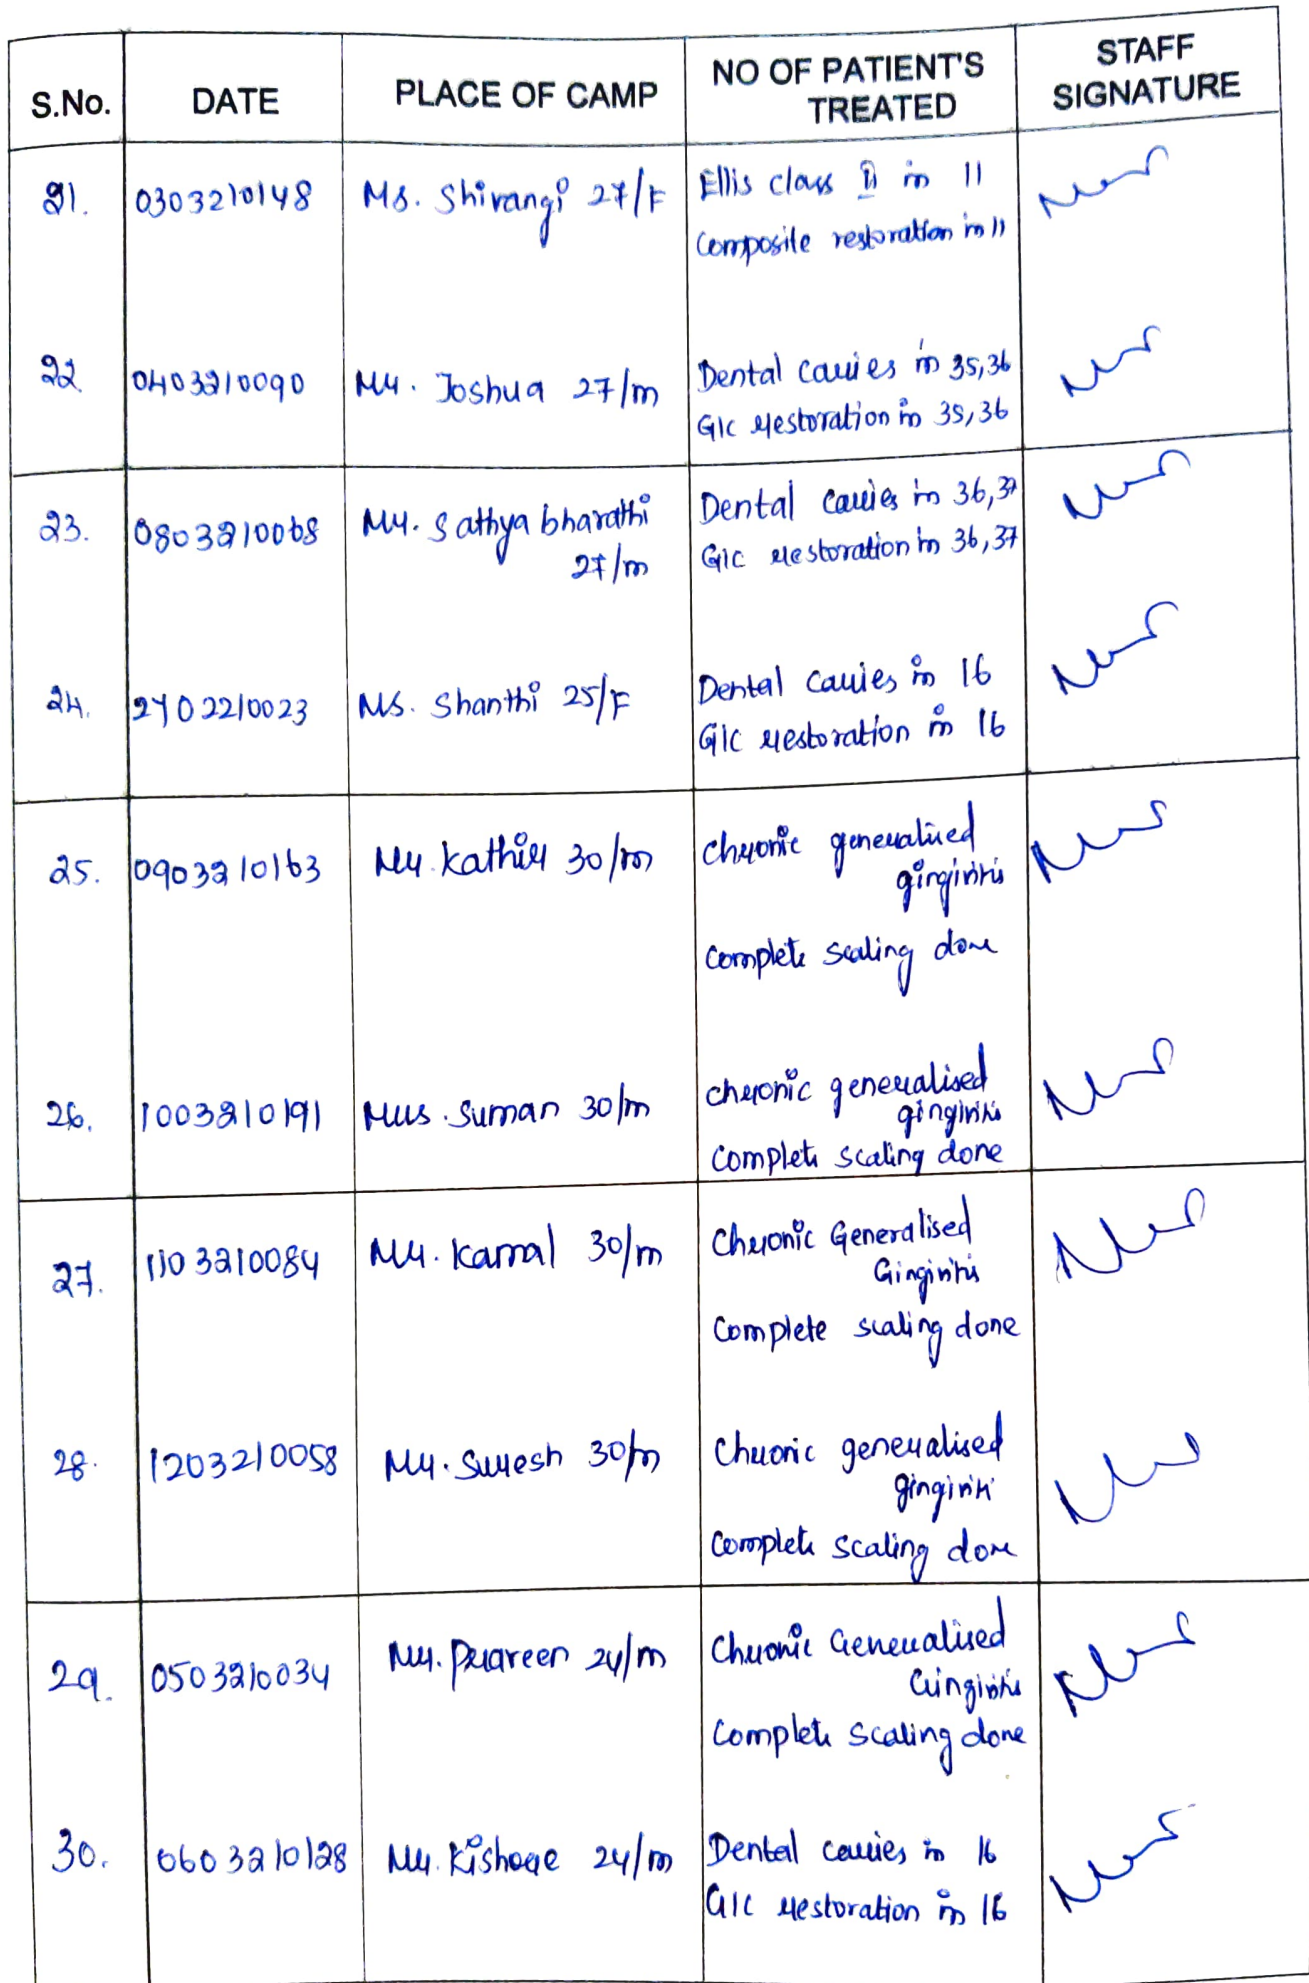 S.No. DATE PLACE OF CAMP NO OF PATIENT'S TREATED STAFF SIGNATURE
21. 0303210148 Ms. Shivangi 27/F Ellis class II in 11
Composite restoration in 11
22. 0403210090 Mr. Joshua 27/m Dental carries in 35,36
GIC restoration in 35,36
23. 0803210068 Mr. Sathya bharathi Dental carries in 36,37
27/m GIC restoration in 36,37
24. 2702210023 Ms. Shanthi 25/F Dental carries in 16
GIC restoration in 16
25. 0903210163 Mr. Kathir 30/m Chronic generalised
gingivitis
Complete scaling done
26. 1003210191 Mrs. Suman 30/m chronic generalised
gingivitis
Complete scaling done
27. 1103210084 Mr. Kamal 30/m Chronic Generalised
Gingivitis
Complete scaling done
28. 1203210058 Mr. Suresh 30/m Chronic generalised
gingivitis
Complete scaling done
29. 0503210034 Mr. Praveen 24/m Chronic Generalised
Gingivitis
Complete scaling done
30. 0603210128 Mr. Kishore 24/m Dental carries in 16
GIC restoration in 16